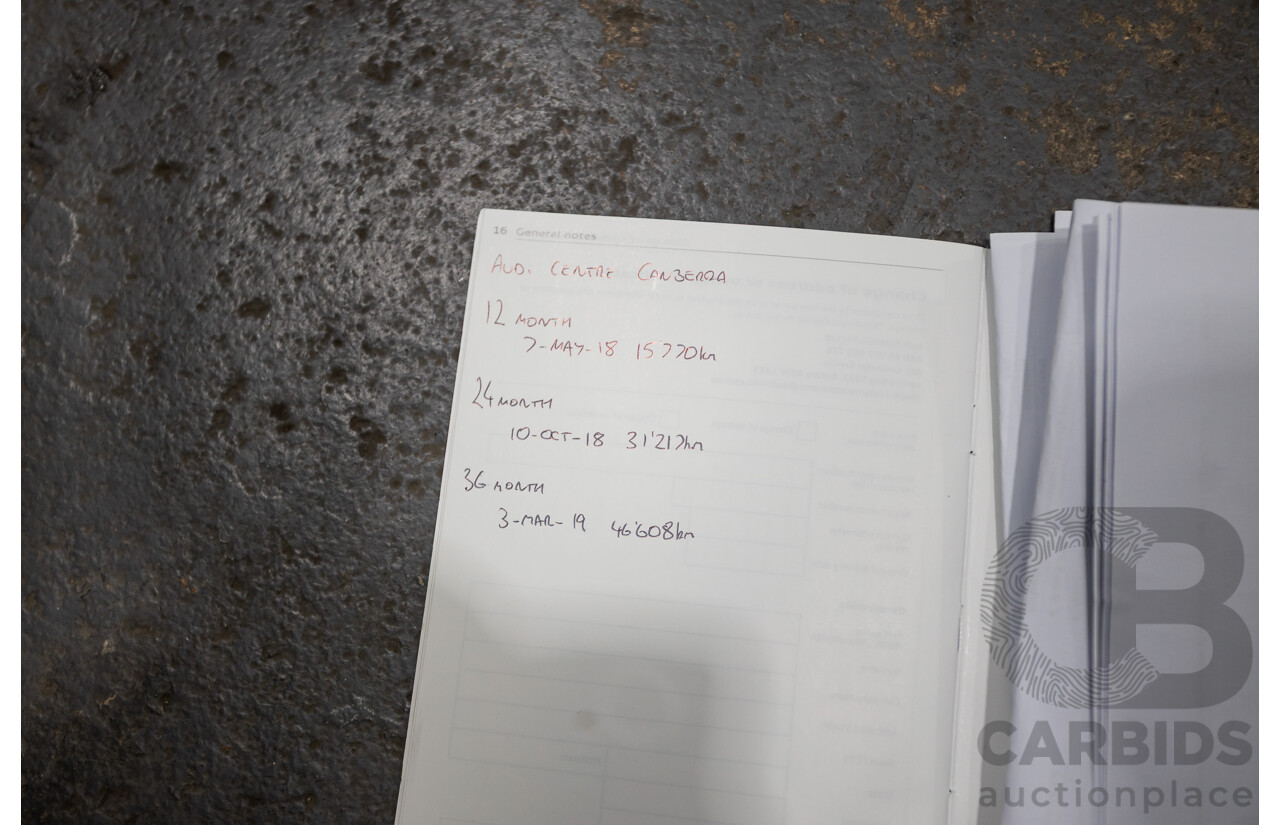 16 General notes
AUDI CENTRE CANBERRA
12 MONTH
7-MAY-18 15'770km
24 MONTH
10-OCT-18 31'217km
36 MONTH
3-MAR-19 46'608km
CB
CARBIDS
auctionplace